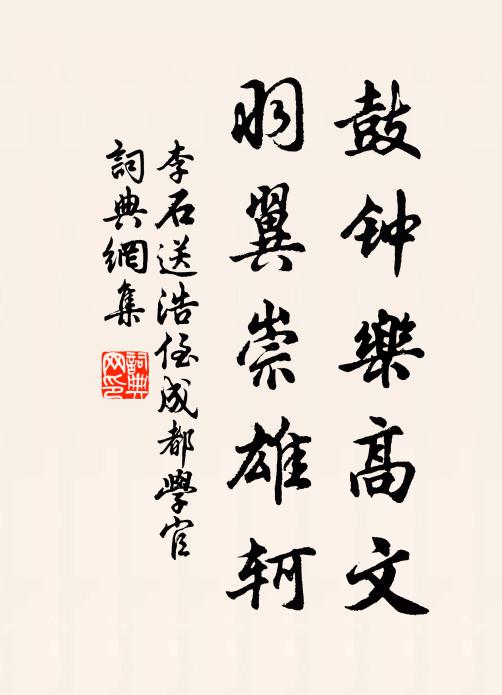 鼓钟樂高文
羽翼崇雄轲
李石送浩侄成都學官
詞典網集
詞典网印